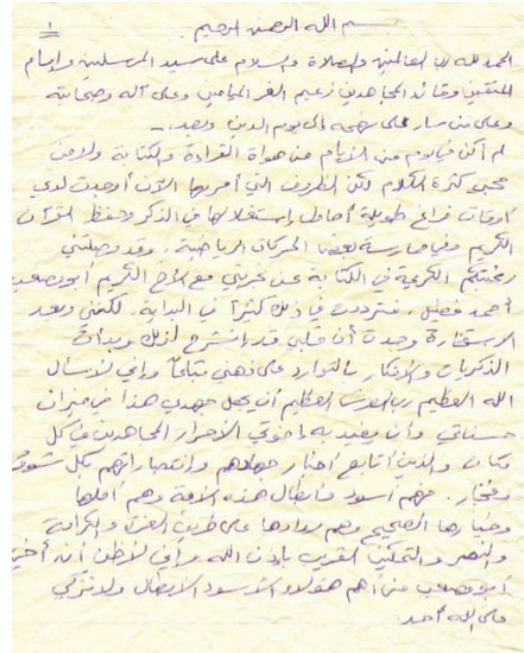 بسم الله الرحمن الرحيم
١
الحمد لله رب العالمين والصلاة والسلام على سيد المرسلين وإمام
المتقين وقائد المجاهدين زعيم الغر الميامين وعلى آله وصحابته
وعلى من سار على نهجه إلى يوم الدين وبعد :ـ
لم أكن في يوم من الأيام من هواة القراءة والكتابة ولا من
محبي كثرة الكلام لكن الظروف التي أمر بها الآن أوجدت لدي
أوقات فراغ طويلة أحاول إستغلالها في الذكر وحفظ القرآن
الكريم وفي ممارسة بعض الحركات الرياضية . وقد وصلتني
رغبتكم الكريمة في الكتابة عن تجربتي مع الأخ الكريم أبو مصعب
أحمد فضيل . فترددت في ذلك كثيراً في البداية . لكنني وبعد
الاستخارة وجدت أن قلبي قد إنشرح لذلك وبدأت
الذكريات والأفكار بالتوارد على ذهني تباعاً وإني لأسأل
الله العظيم رب العرش العظيم أن يجعل جهدي هذا في ميزان
حسناتي وأن يفيد به إخوتي الأحرار المجاهدين في كل
مكان والذين أتابع أخبار جهادهم وإنتصاراتهم بكل شوق
وفخار . فهم أسود وأبطال هذه الأمة وهم أملها
وخيارها الصحيح وهم روادها على طريق العزة والكرامة
والنصر والتمكين القريب بإذن الله وإني لأظن أن أخي
أبو مصعب من أهم هؤلاء الأسود الأبطال ولا نزكي
على الله أحد